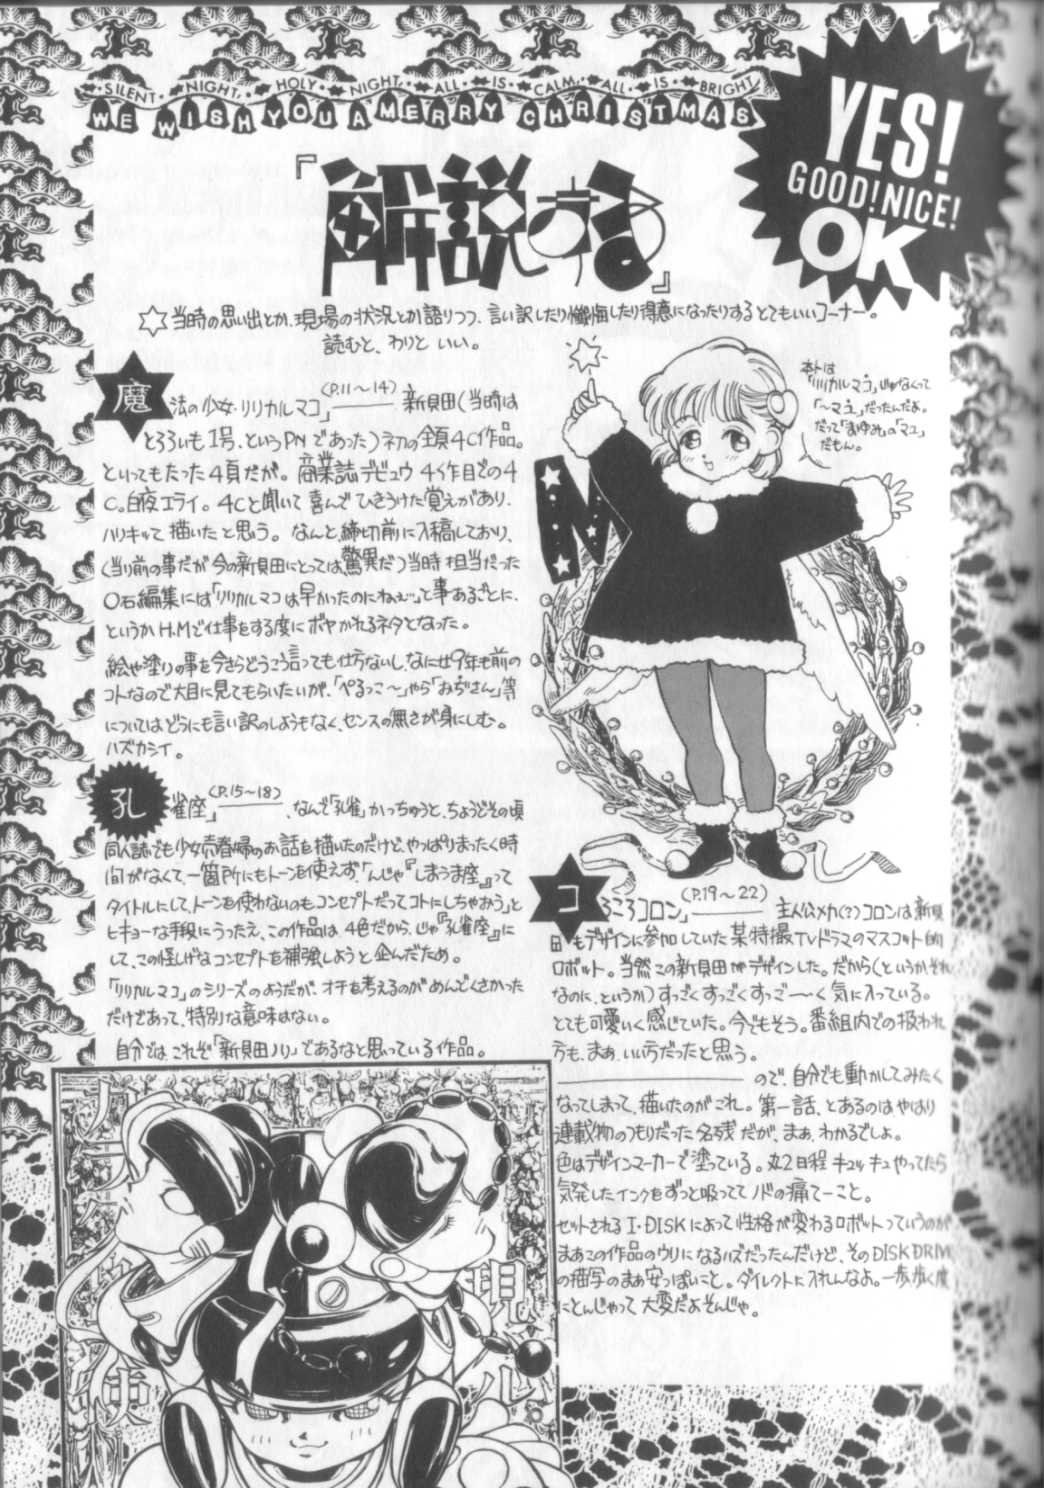 SILENT NIGHT, HOLY NIGHT, ALL IS CALM, ALL IS BRIGHT
WE WISH YOU A MERRY CHRISTMAS
YES!
GOOD! NICE!
OK
『解説する』
☆当時の思い出とか、現場の状況とか語りつつ、言い訳したり懺悔したり得意になったりするとてもいいコーナー。
読むと、わりと いい。
魔法の少女・リリカルマコ」(P.11〜14)―― 新貝田(当時は
とろろいも1号、というPNであった)初の全頁4C作品。
といってもたった4頁だが。商業誌デビュウ
C。白夜エライ。4Cと聞いて喜んでひきうけた覚えがあり、
ハリキッて描いたと思う。なんと、締切前に入稿しており、
(当り前の事だが今の新貝田にとっては、驚異だ)当時担当だった
○石編集には「リリカルマコは早かったのにねぇ…」と事あるごとに、
というかH.Mで仕事をする度にボヤかれるネタとなった。
絵や塗りの事を今さらどうこう言っても仕方ないし、なにせ9年も前の
コトなので大目に見てもらいたいが、「ぺるっこ〜」やら「おぢさん」等
についてはどうにも言い訳のしようもなく、センスの無さが身にしむ。
ハズカシイ。
孔雀座」(P.15〜18)――、なんで「孔雀」かっちゅうと、ちょうどその頃
同人誌でも少女売春婦のお話を描いたのだけど、やっぱりまったく時
間がなくて、一箇所にもトーンを使えず、「んじゃ『しまうま座』って
タイトルにして、トーンを使わないのもコンセプトだってコトにしちゃおう」と
ヒキョーな手段にうったえ、この作品は4色だから、じゃ『孔雀座』に
して、この怪しげなコンセプトを補強しようと企んだため。
「リリカルマコ」のシリーズのようだが、オチを考えるのがめんどくさかった
だけであって、特別な意味はない。
自分では、これぞ「新貝田ノリ」であるなと思っている作品。
本トは
「リリカルマコ」じゃなくって
「〜マユ」だったんだよ。
だって「まゆみ」の「マユ」
だもん。
M
コろころコロン」(P.19〜22)―― 主人公メカ(?)コロンは新貝
田もデザインに参加していた某特撮TVドラマのマスコット的
ロボット。当然この新貝田がデザインした。だから(というかそれ
なのに、というか)すっごくすっごくすっご――く気に入っている。
とても可愛いく感じていた。今でもそう。番組内での扱われ
方も、まぁ、いい方だったと思う。
―――― ので、自分でも動かしてみたく
なってしまって、描いたのがこれ。第一話、とあるのはやはり
連載物のつもりだった名残だが、まぁ、わかるでしょ。
色はデザインマーカーで塗っている。丸2日程キュッキュやってたら
気発したインクをずっと吸っててノドの痛てーこと。
セットされるI・DISKによって性格が変わるロボットっていうのが
まぁこの作品のウリになるハズだったんだけど、そのDISK DRIVE
の描写のまぁ安っぽいこと。ダイレクトに入れんなよ。一歩歩く度
にとんじゃって大変だよそんじゃ。
現